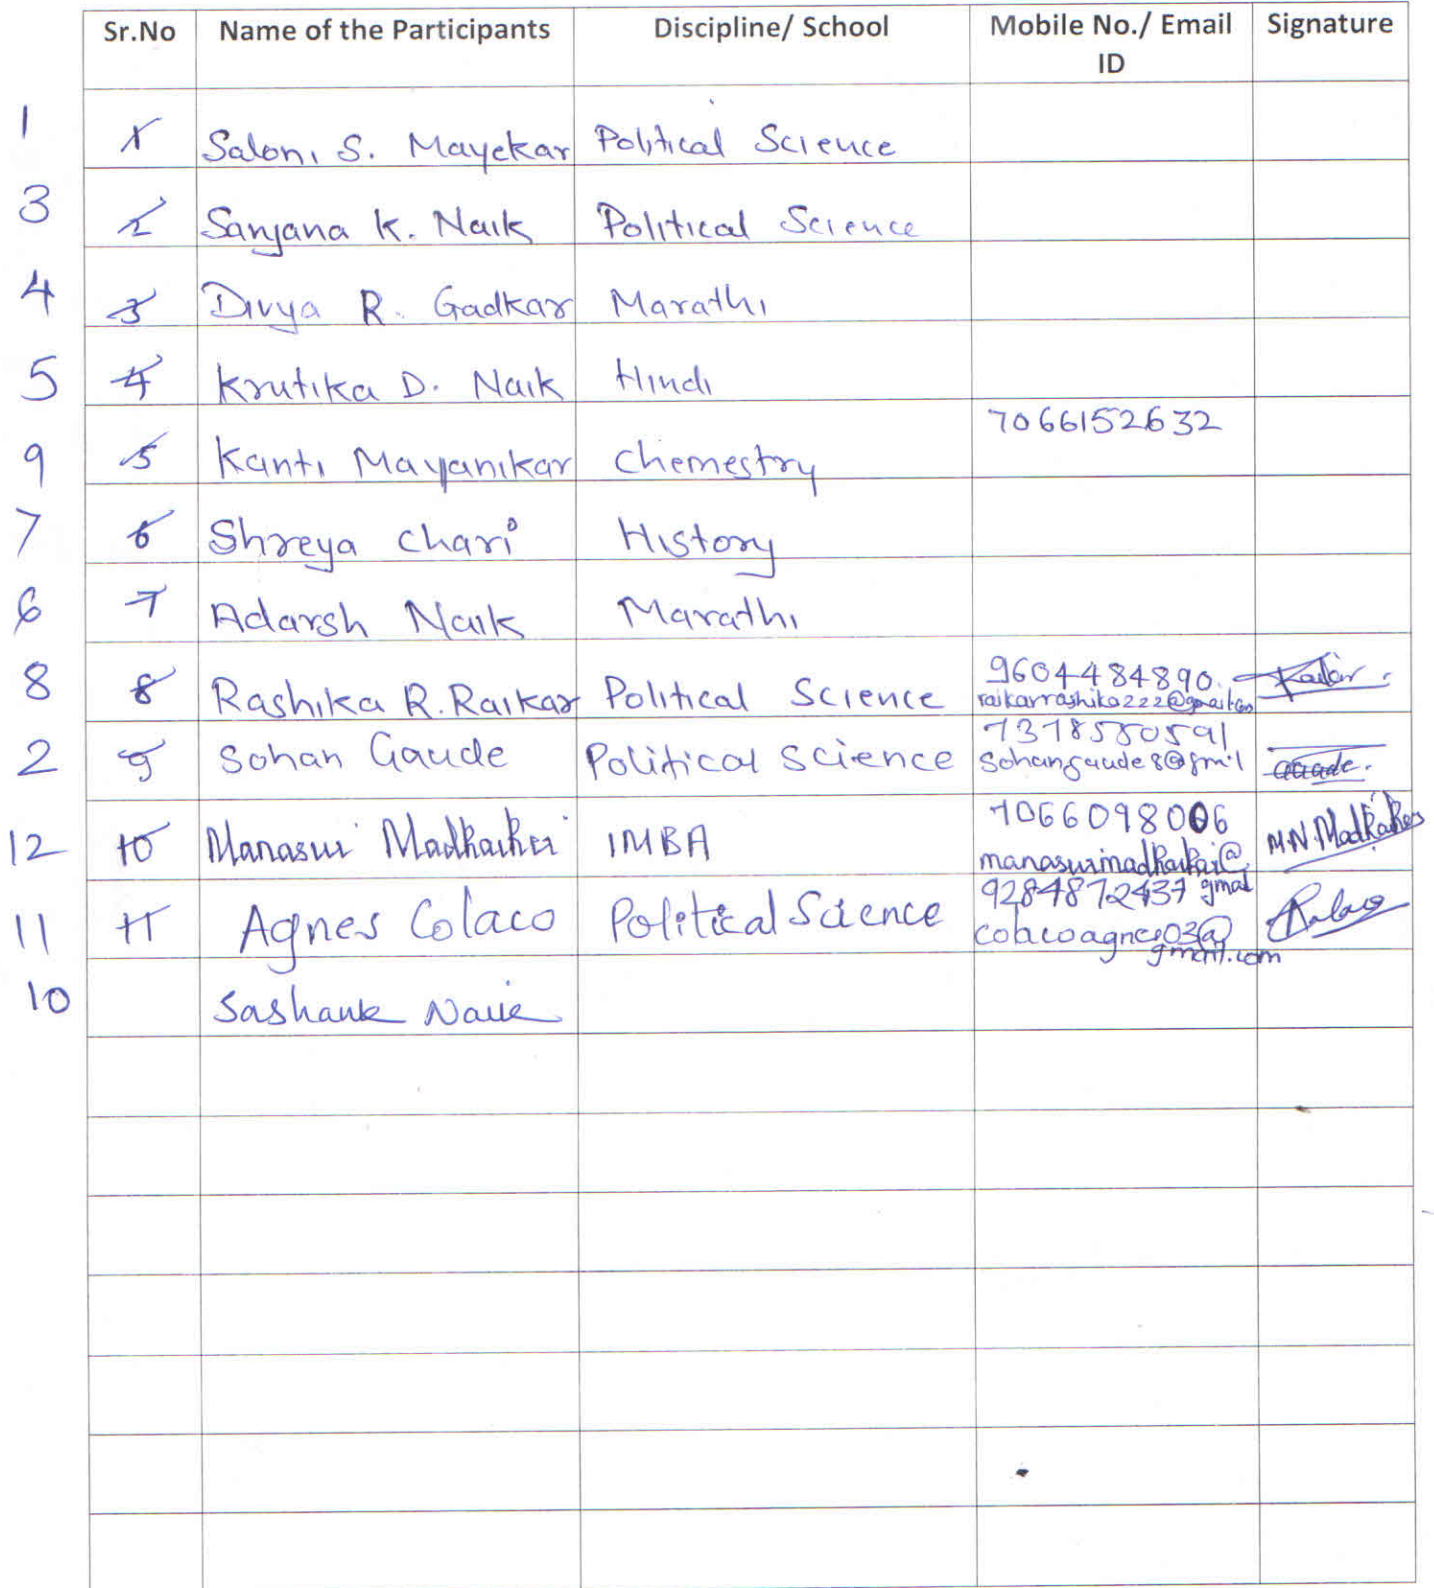 Sr.No Name of the Participants Discipline/ School Mobile No./ Email Signature
ID
1 1 Saloni S. Mayekar Political Science
3 2 Sanjana K. Naik Political Science
4 3 Divya R. Gadkar Marathi
5 4 Krutika D. Naik Hindi
7066152632
9 5 Kanti Mayanikar Chemestry
7 6 Shreya Chari History
6 7 Adarsh Naik Marathi
8 8 Rashika R. Raikar Political Science 9604484890 Raikar
raikarrashika222@gmail.com
2 9 Sohan Gaude Political Science Gaude
12 10 IMBA 7066098006 M.N.Madkaikar
11 11 Agnes Colaco Political Science 9284872437 gmail
colacoagnes03@
gmail.com
10 Sashank Naik